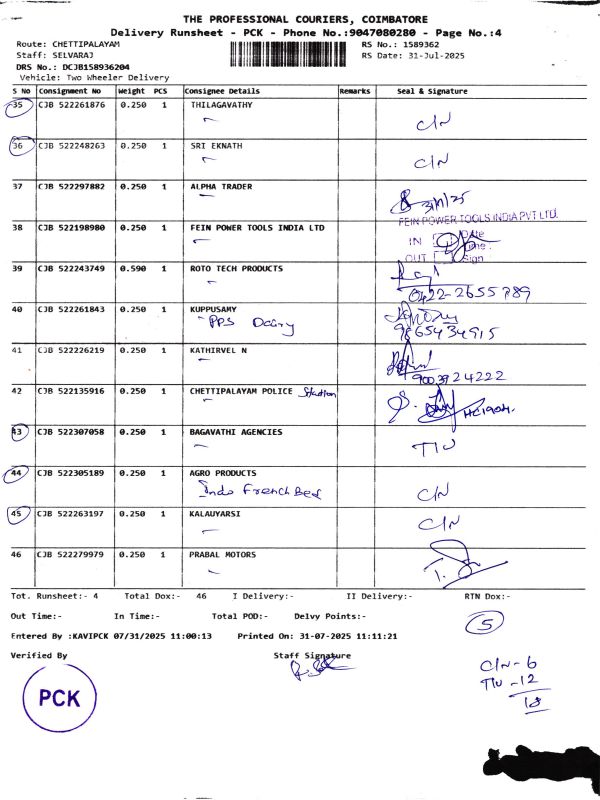 THE PROFESSIONAL COURIERS, COIMBATORE
Delivery Runsheet - PCK - Phone No.:9047080280 - Page No.:4
Route: CHETTIPALAYAM RS No.: 1589362
Staff: SELVARAJ RS Date: 31-Jul-2025
DRS No.: DCJB158936204
Vehicle: Two Wheeler Delivery
S No Consignment No Weight PCS Consignee Details Remarks Seal & Signature
35 CJB 522261876 0.250 1 THILAGAVATHY C/N
36 CJB 522248263 0.250 1 SRI EKNATH C/N
37 CJB 522297882 0.250 1 ALPHA TRADER
38 CJB 522198980 0.250 1 FEIN POWER TOOLS INDIA LTD
FEIN POWER TOOLS INDIA PVT LTD.
IN Date
Time:
OUT Sign
39 CJB 522243749 0.590 1 ROTO TECH PRODUCTS
0422-2655889
40 CJB 522261843 0.250 1 KUPPUSAMY
PPS Dairy 9865434915
41 CJB 522226219 0.250 1 KATHIRVEL N
9003924222
42 CJB 522135916 0.250 1 CHETTIPALAYAM POLICE Station
43 CJB 522307058 0.250 1 BAGAVATHI AGENCIES
TIU
44 CJB 522305189 0.250 1 AGRO PRODUCTS
Indo French Bed C/N
45 CJB 522263197 0.250 1 KALAUYARSI C/N
46 CJB 522279979 0.250 1 PRABAL MOTORS
Tot. Runsheet:- 4 Total Dox:- 46 I Delivery:- II Delivery:- RTN Dox:-
Out Time:- In Time:- Total POD:- Delvy Points:- 5
Entered By :KAVIPCK 07/31/2025 11:00:13 Printed On: 31-07-2025 11:11:21
Verified By Staff Signature
C/N - 6
TIU - 12
18
PCK